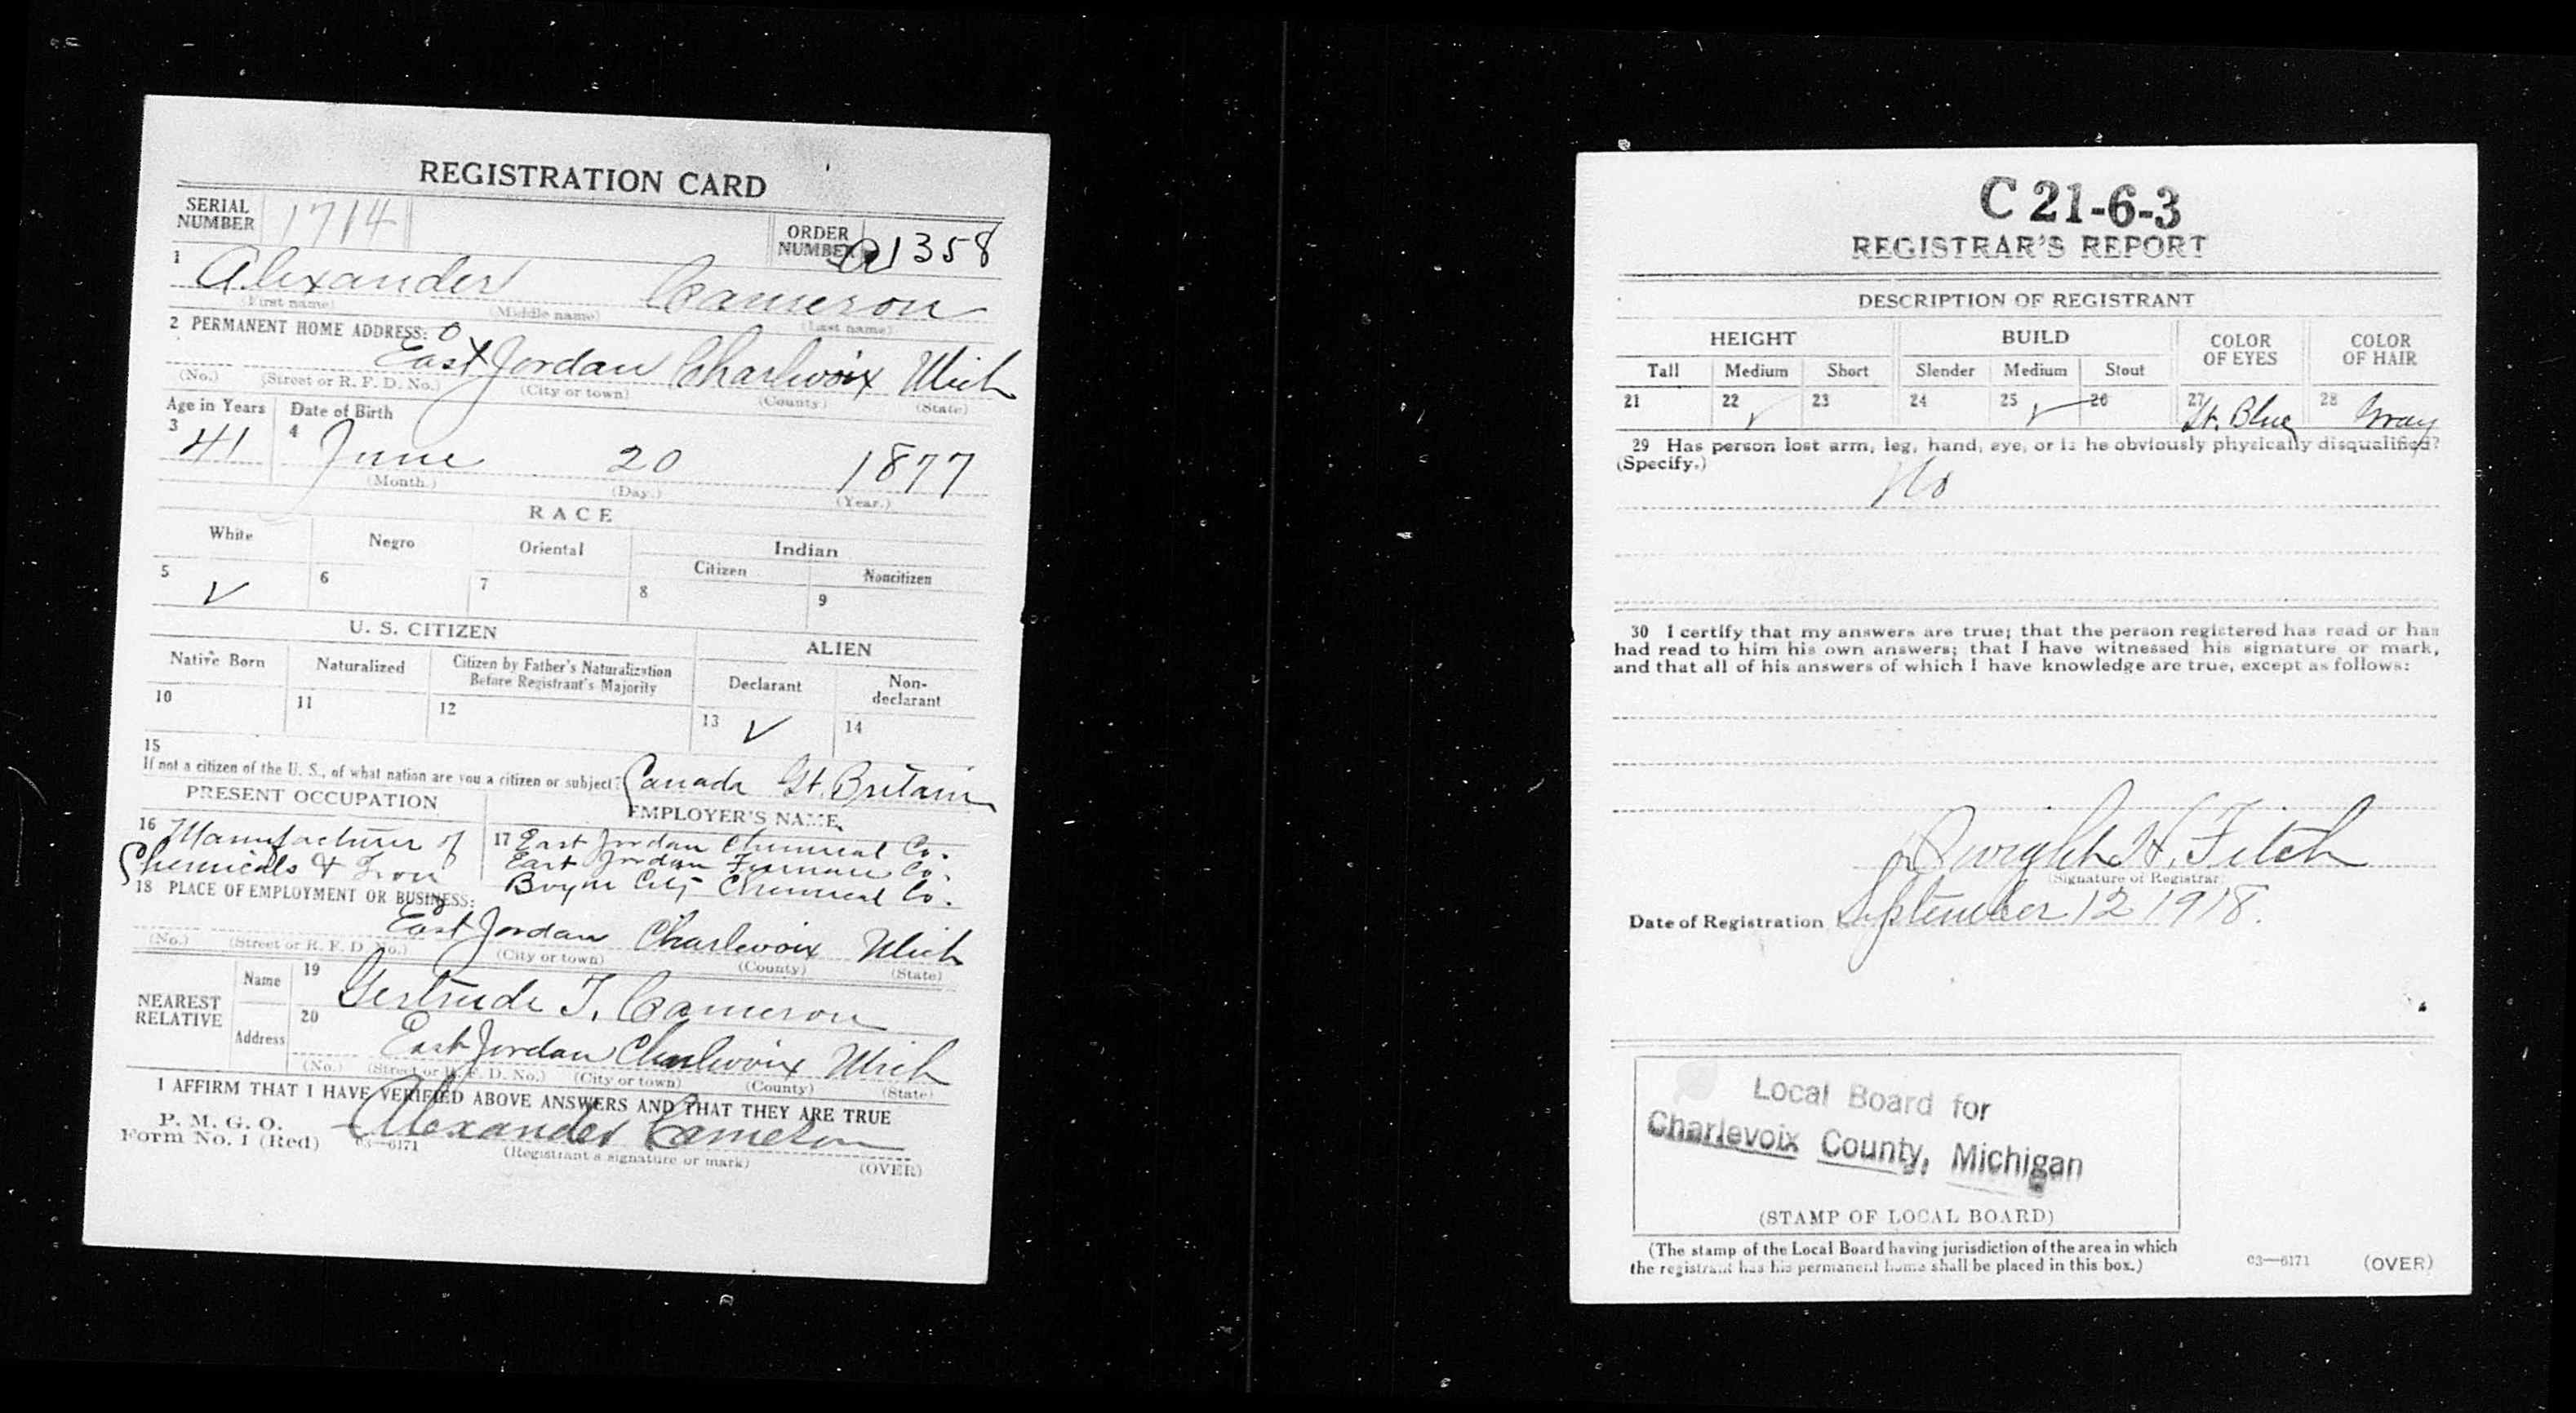 REGISTRATION CARD
SERIAL NUMBER 1714 ORDER NUMBER A1358
1 Alexander Cameron
(First name) (Middle name) (Last name)
2 PERMANENT HOME ADDRESS:
East Jordan Charlevoix Mich
(No.) (Street or R. F. D. No.) (City or town) (County) (State)
Age in Years Date of Birth
3 41 4 June 20 1877
(Month.) (Day.) (Year.)
RACE
White Negro Oriental Indian
Citizen Noncitizen
5 ✓ 6 7 8 9
U. S. CITIZEN ALIEN
Native Born Naturalized Citizen by Father's Naturalization Before Registrant's Majority Declarant Non-declarant
10 11 12 13 ✓ 14
15
If not a citizen of the U. S., of what nation are you a citizen or subject? Canada Gt. Britain
PRESENT OCCUPATION EMPLOYER'S NAME
16 Manufacturer of Chemicals & Iron
17 East Jordan Chemical Co.
East Jordan Furnace Co.
Boyne City Chemical Co.
18 PLACE OF EMPLOYMENT OR BUSINESS:
East Jordan Charlevoix Mich
(No.) (Street or R. F. D. No.) (City or town) (County) (State)
NEAREST RELATIVE
Name 19 Gertrude T. Cameron
Address 20 East Jordan Charlevoix Mich
(No.) (Street or R. F. D. No.) (City or town) (County) (State)
I AFFIRM THAT I HAVE VERIFIED ABOVE ANSWERS AND THAT THEY ARE TRUE
P. M. G. O.
Form No. 1 (Red) 03—6171 Alexander Cameron
(Registrant's signature or mark) (OVER)
C 21-6-3
REGISTRAR'S REPORT
DESCRIPTION OF REGISTRANT
HEIGHT BUILD COLOR OF EYES COLOR OF HAIR
Tall Medium Short Slender Medium Stout
21 22 ✓ 23 24 25 ✓ 26 27 Lt. Blue 28 Gray
29 Has person lost arm, leg, hand, eye, or is he obviously physically disqualified?
(Specify.) No
30 I certify that my answers are true; that the person registered has read or has
had read to him his own answers; that I have witnessed his signature or mark,
and that all of his answers of which I have knowledge are true, except as follows:
Dwight H. Fitch
(Signature of Registrar)
Date of Registration September 12 1918.
Local Board for
Charlevoix County, Michigan
(STAMP OF LOCAL BOARD)
(The stamp of the Local Board having jurisdiction of the area in which
the registrant has his permanent home shall be placed in this box.)
03—6171 (OVER)